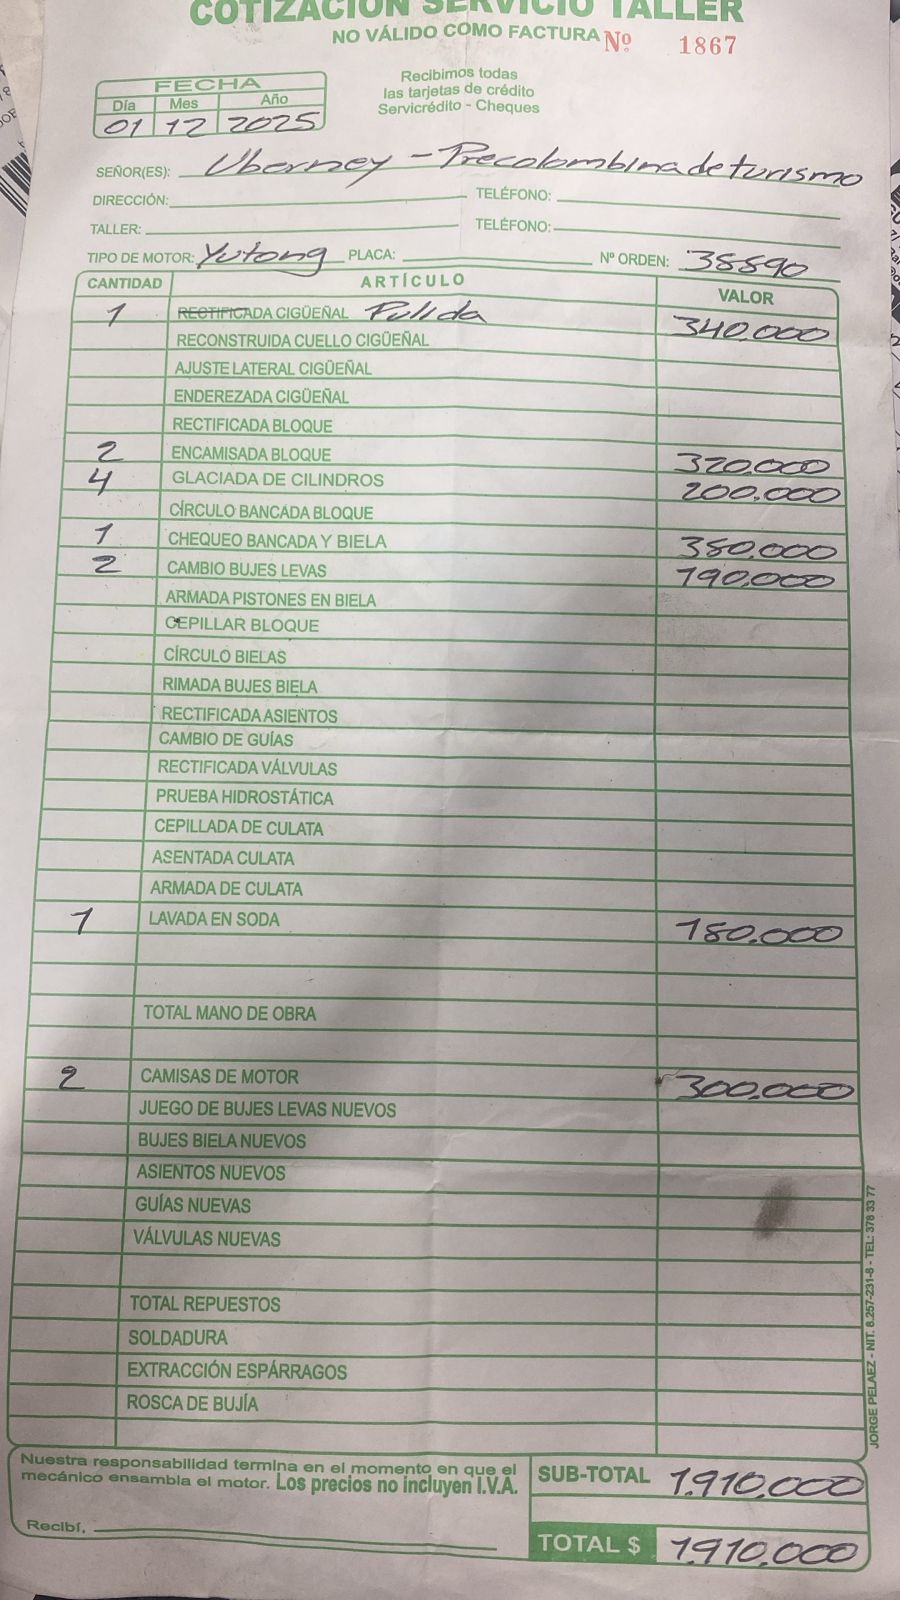 COTIZACIÓN SERVICIO TALLER
NO VÁLIDO COMO FACTURA Nº 1867
Recibimos todas
las tarjetas de crédito
Servicrédito - Cheques
FECHA
Día Mes Año
01 12 2025
SEÑOR(ES): Uberney - Precolombina de turismo
DIRECCIÓN: TELÉFONO:
TALLER: TELÉFONO:
TIPO DE MOTOR: Yutong PLACA: Nº ORDEN: 38890
CANTIDAD ARTÍCULO VALOR
1 RECTIFICADA CIGÜEÑAL Pulida 340.000
RECONSTRUIDA CUELLO CIGÜEÑAL
AJUSTE LATERAL CIGÜEÑAL
ENDEREZADA CIGÜEÑAL
RECTIFICADA BLOQUE
2 ENCAMISADA BLOQUE 320.000
4 GLACIADA DE CILINDROS 200.000
CÍRCULO BANCADA BLOQUE
1 CHEQUEO BANCADA Y BIELA 380.000
2 CAMBIO BUJES LEVAS 190.000
ARMADA PISTONES EN BIELA
CEPILLAR BLOQUE
CÍRCULO BIELAS
RIMADA BUJES BIELA
RECTIFICADA ASIENTOS
CAMBIO DE GUÍAS
RECTIFICADA VÁLVULAS
PRUEBA HIDROSTÁTICA
CEPILLADA DE CULATA
ASENTADA CULATA
ARMADA DE CULATA
1 LAVADA EN SODA 180.000
TOTAL MANO DE OBRA
2 CAMISAS DE MOTOR 300.000
JUEGO DE BUJES LEVAS NUEVOS
BUJES BIELA NUEVOS
ASIENTOS NUEVOS
GUÍAS NUEVAS
VÁLVULAS NUEVAS
TOTAL REPUESTOS
SOLDADURA
EXTRACCIÓN ESPÁRRAGOS
ROSCA DE BUJÍA
JORGE PELAEZ - NIT. 8.257-231-8 - TEL: 378 33 77
Nuestra responsabilidad termina en el momento en que el
mecánico ensambla el motor. Los precios no incluyen I.V.A.
Recibí,
SUB-TOTAL 1.910.000
TOTAL $ 1.910.000